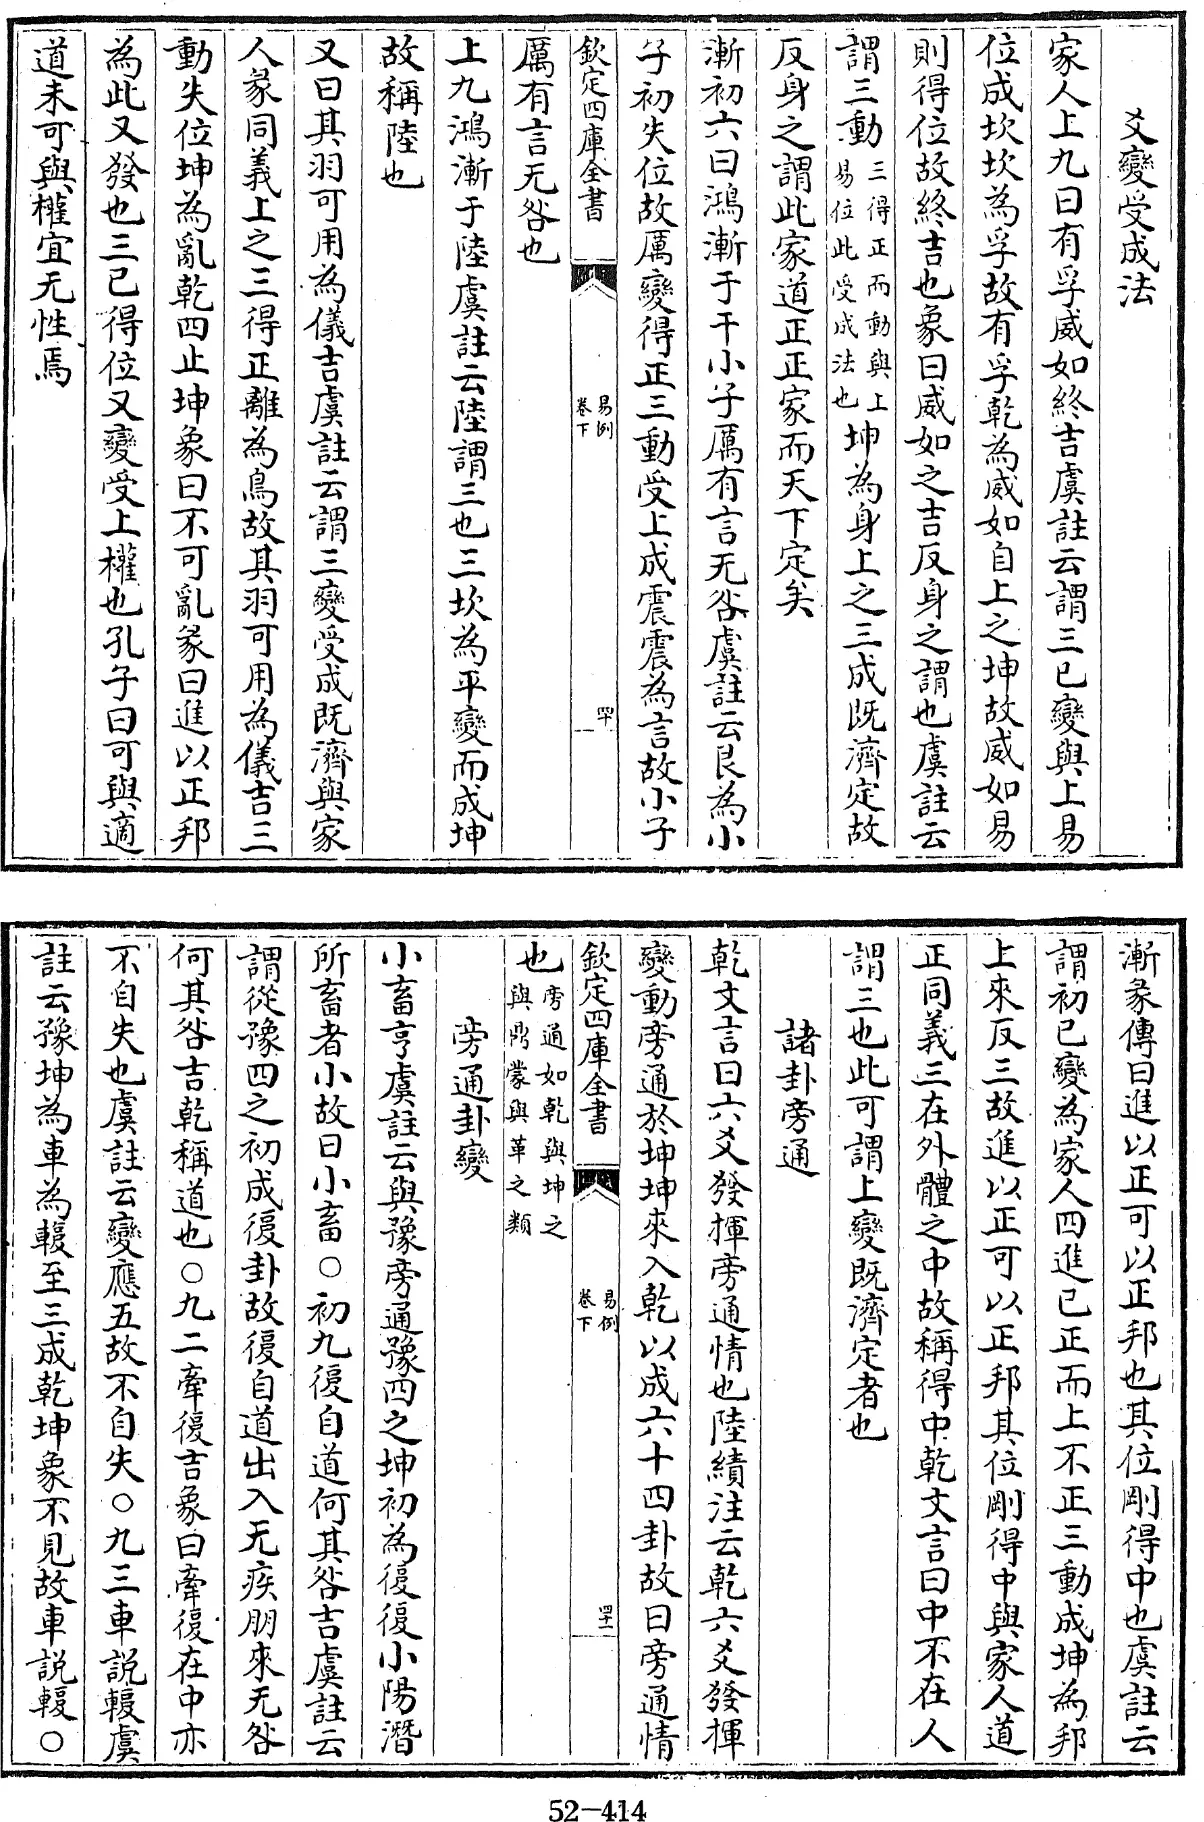 爻變受成法
家人上九曰有孚威如終吉虞註云謂三已變與上易
位成坎坎為孚故有孚乾為威如自上之坤故威如易
則得位故終吉也象曰威如之吉反身之謂也虞註云
謂三動三得正而動與上易位此受成法也坤為身上之三成既濟定故
反身之謂此家道正正家而天下定矣
漸初六曰鴻漸于干小子厲有言无咎虞註云艮為小
子初失位故厲變得正三動受上成震震為言故小子
欽定四庫全書
易例
卷下
四十一
厲有言无咎也
上九鴻漸于陸虞註云陸謂三也三坎為平變而成坤
故稱陸也
又曰其羽可用為儀吉虞註云謂三變受成既濟與家
人彖同義上之三得正離為鳥故其羽可用為儀吉三
動失位坤為亂乾四止坤象曰不可亂彖曰進以正邦
為此又發也三已得位又變受上權也孔子曰可與適
道未可與權宜无性焉
漸彖傳曰進以正可以正邦也其位剛得中也虞註云
謂初已變為家人四進已正而上不正三動成坤為邦
上來反三故進以正可以正邦其位剛得中與家人道
正同義三在外體之中故稱得中乾文言曰中不在人
謂三也此可謂上變既濟定者也
諸卦旁通
乾文言曰六爻發揮旁通情也陸績注云乾六爻發揮
變動旁通於坤坤來入乾以成六十四卦故曰旁通情
欽定四庫全書
易例
卷下
四十二
也旁通如乾與坤之與鼎蒙與革之類
旁通卦變
小畜亨虞註云與豫旁通豫四之坤初為復復小陽潛
所畜者小故曰小畜○初九復自道何其咎吉虞註云
謂從豫四之初成復卦故復自道出入无疾朋來无咎
何其咎吉乾稱道也○九二牽復吉象曰牽復在中亦
不自失也虞註云變應五故不自失○九三車説輹虞
註云豫坤為車為輹至三成乾坤象不見故車説輹○
52-414